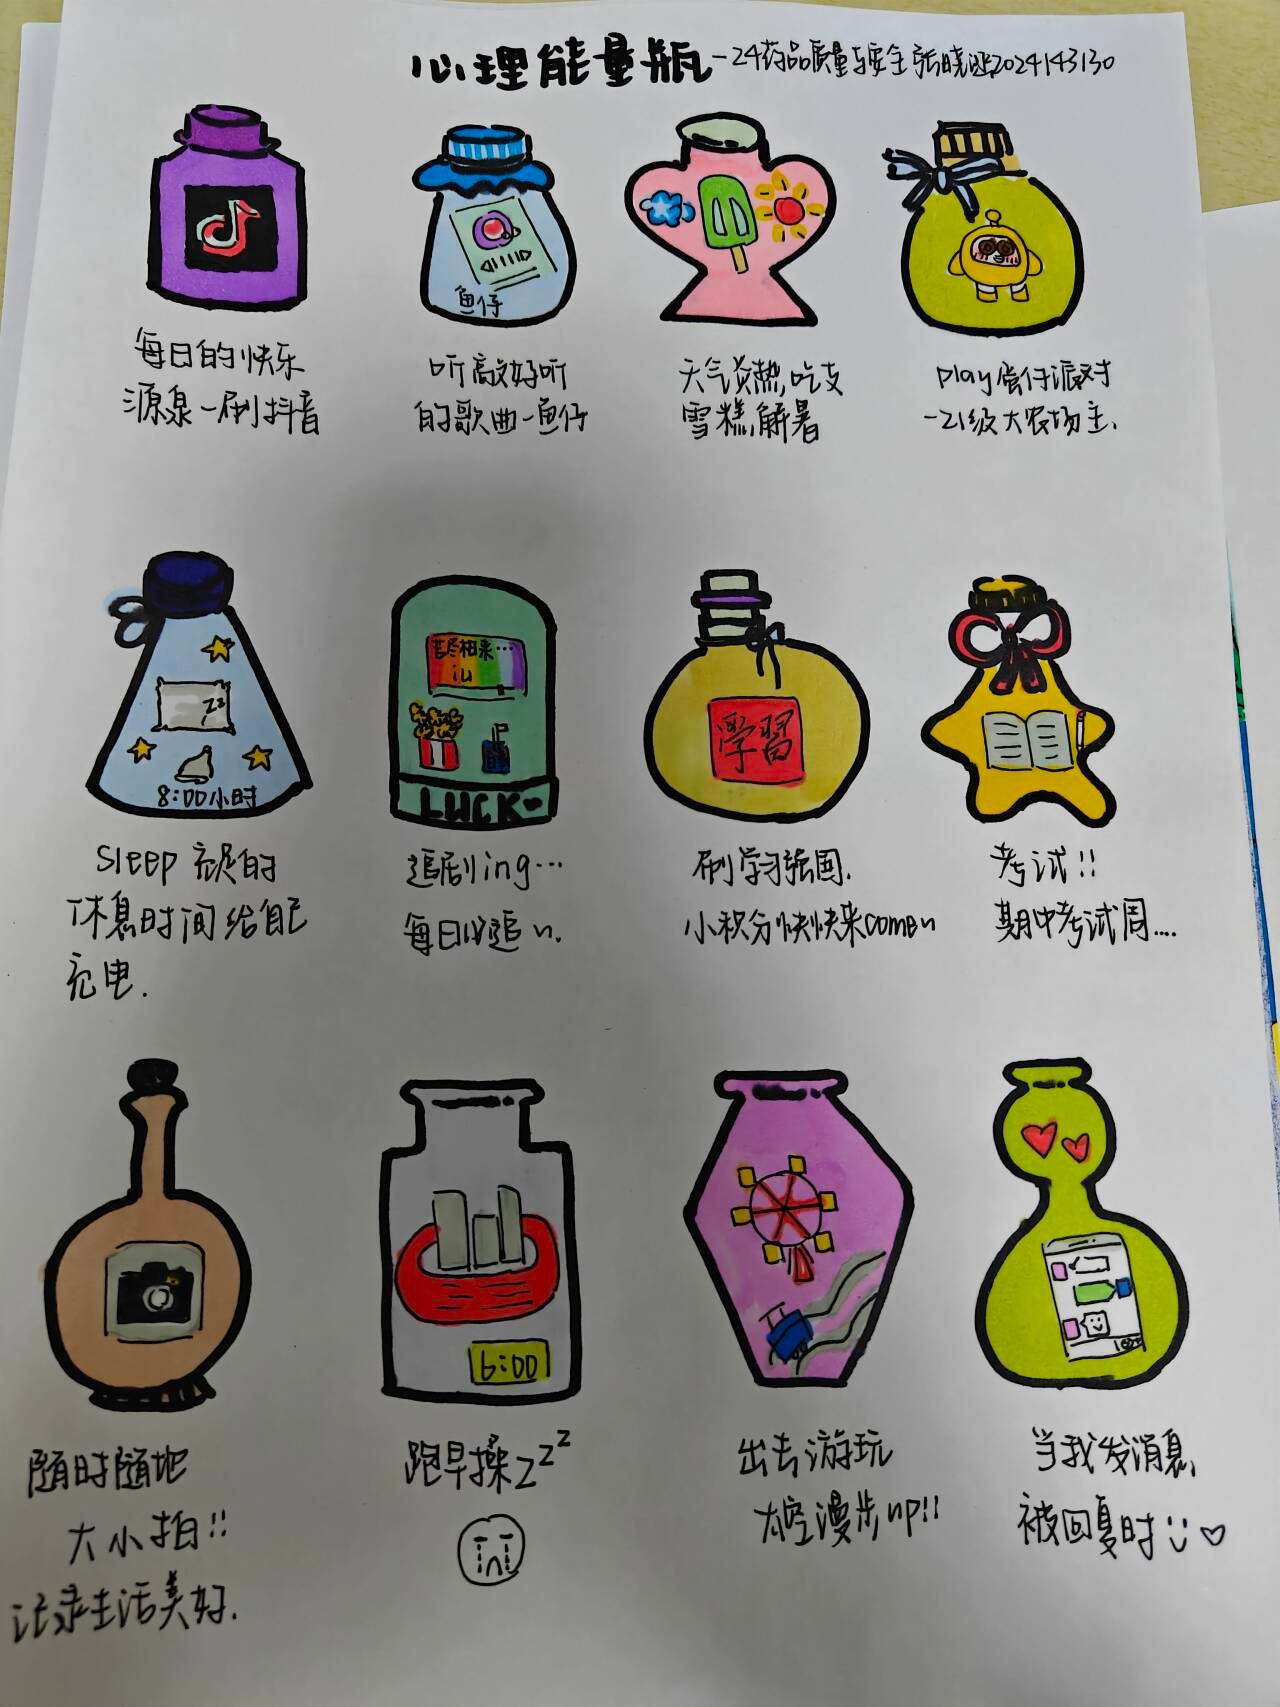 心理能量瓶-24药品质量与安全 张晓 2024143130
鱼仔
每日的快乐
源泉-刷抖音
听高效好听
的歌曲-鱼仔
天气炎热,吃支
雪糕,解暑
play蛋仔派对
-21级大农场主.
zz
8:00小时
苦尽柑来…
iu
LUCK
学習
sleep 充足的
休息时间给自己
充电.
追剧ing…
每日必追
刷学习强国.
小积分快快来come
考试!!
期中考试周....
6:00
随时随地
大小拍!!
记录生活美好.
跑早操zzz
出去游玩
太空漫步up!!
当我发消息,
被回复时